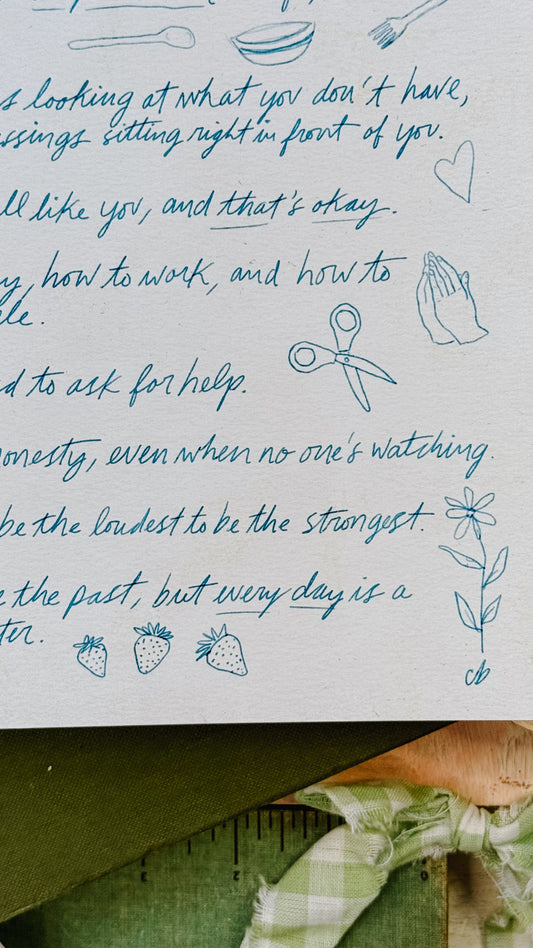 s looking at what you don't have,
ssings sitting right in front of you.
ll like you, and that's okay.
y, how to work, and how to
le.
d to ask for help.
onesty, even when no one's watching.
be the loudest to be the strongest.
e the past, but every day is a
ter.
cb
3 2